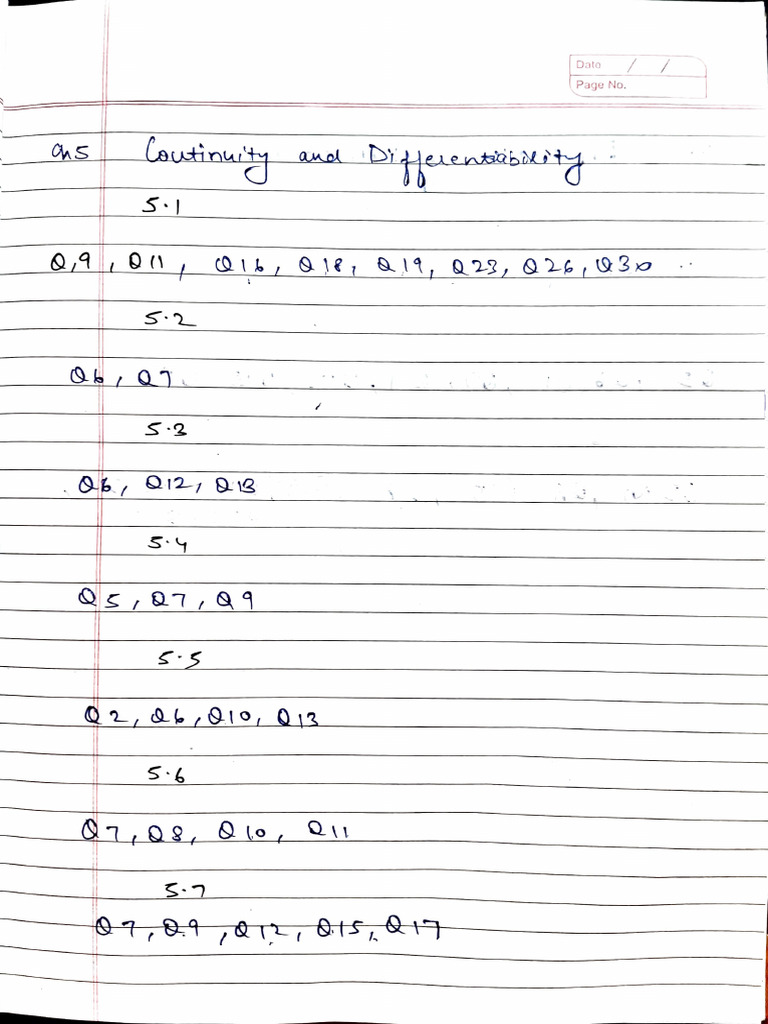 Date / /
Page No.
Ch 5 Continuity and Differentiability
5.1
Q,9, Q11, Q16, Q18, Q19, Q23, Q26, Q30
5.2
Q6, Q7
5.3
Q6, Q12, Q13
5.4
Q5, Q7, Q9
5.5
Q2, Q6, Q10, Q13
5.6
Q7, Q8, Q10, Q11
5.7
Q7, Q9, Q12, Q15, Q17